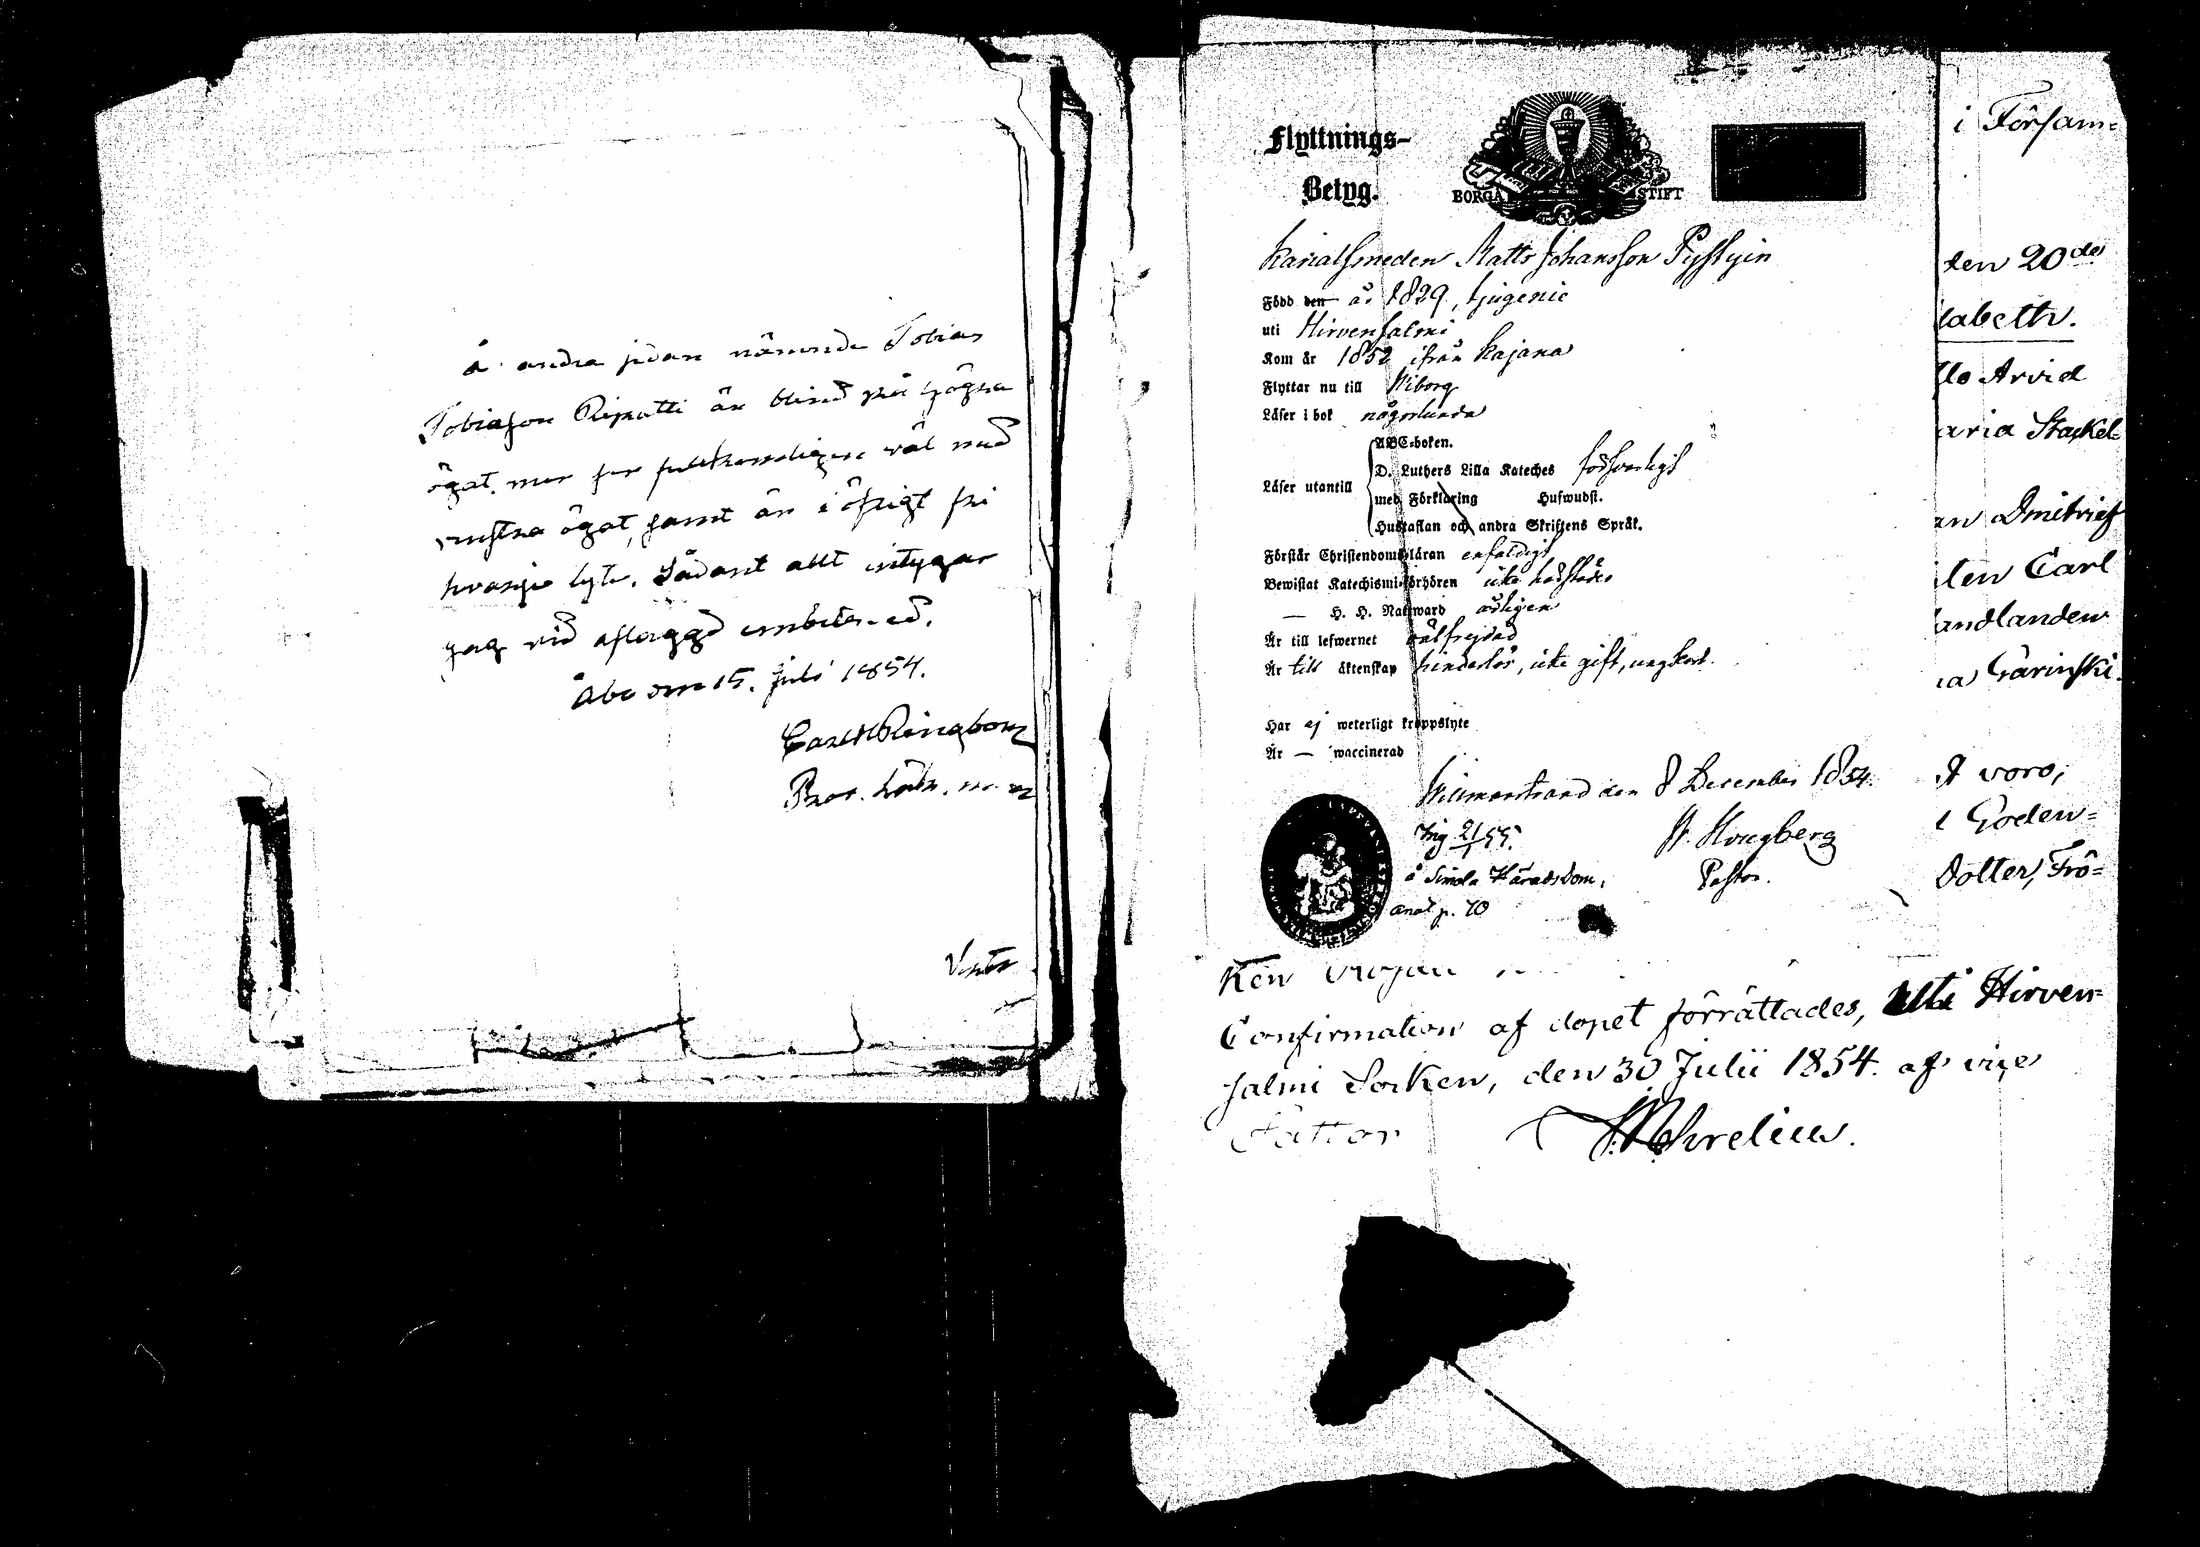 å andra sidan nämnde Tobias
Tobiasson Ripatti är blind på högra
ögat, men ser fullkomligen väl med
venstra ögat, samt är i öfrigt fri
hvarje lyte. Sådant allt intygar
jag vid aflaggd embets-ed.
Åbo den 15. juli 1854.
Carl Ringbom
Prov.
Flyttnings-
Betyg.
BORGÅ STIFT
Matts Johansson Pystyin
Född den år 1829,
uti Hirvensalmi
Kom år 1852 ifrån Kajana
Flyttar nu till Wiborg
Läser i bok någorlunda
Läser utantill
ABC-boken.
D. Luthers Lilla Kateches försvarligt
med Förklaring Hufwudst.
Hustaflan och andra Skriftens Språk.
Förstår Christendomsläran enfaldigt
Bewistat Katechismi-förhören icke härstädes
— H. H. Nattward årligen
Är till lefwernet välfrejdad
Är till äktenskap hinderlös, icke gift, ungkarl.
Har ej weterligt kroppslyte
Är — waccinerad
Willmanstrand den 8 December 1854.
Ing 21/1 55.
å Simola Häradsdom,
p. 70
Pastor.
i Försam=
den 20de
sabeth.
Arvid
aria Stackel=
an Dmitrief
ten Carl
andlanden
voro,
Goden=
dotter, Frö=
Confirmation af dopet förrättades, uti Hirven=
salmi Socken, den 30 Julii 1854. af vice
Pastor